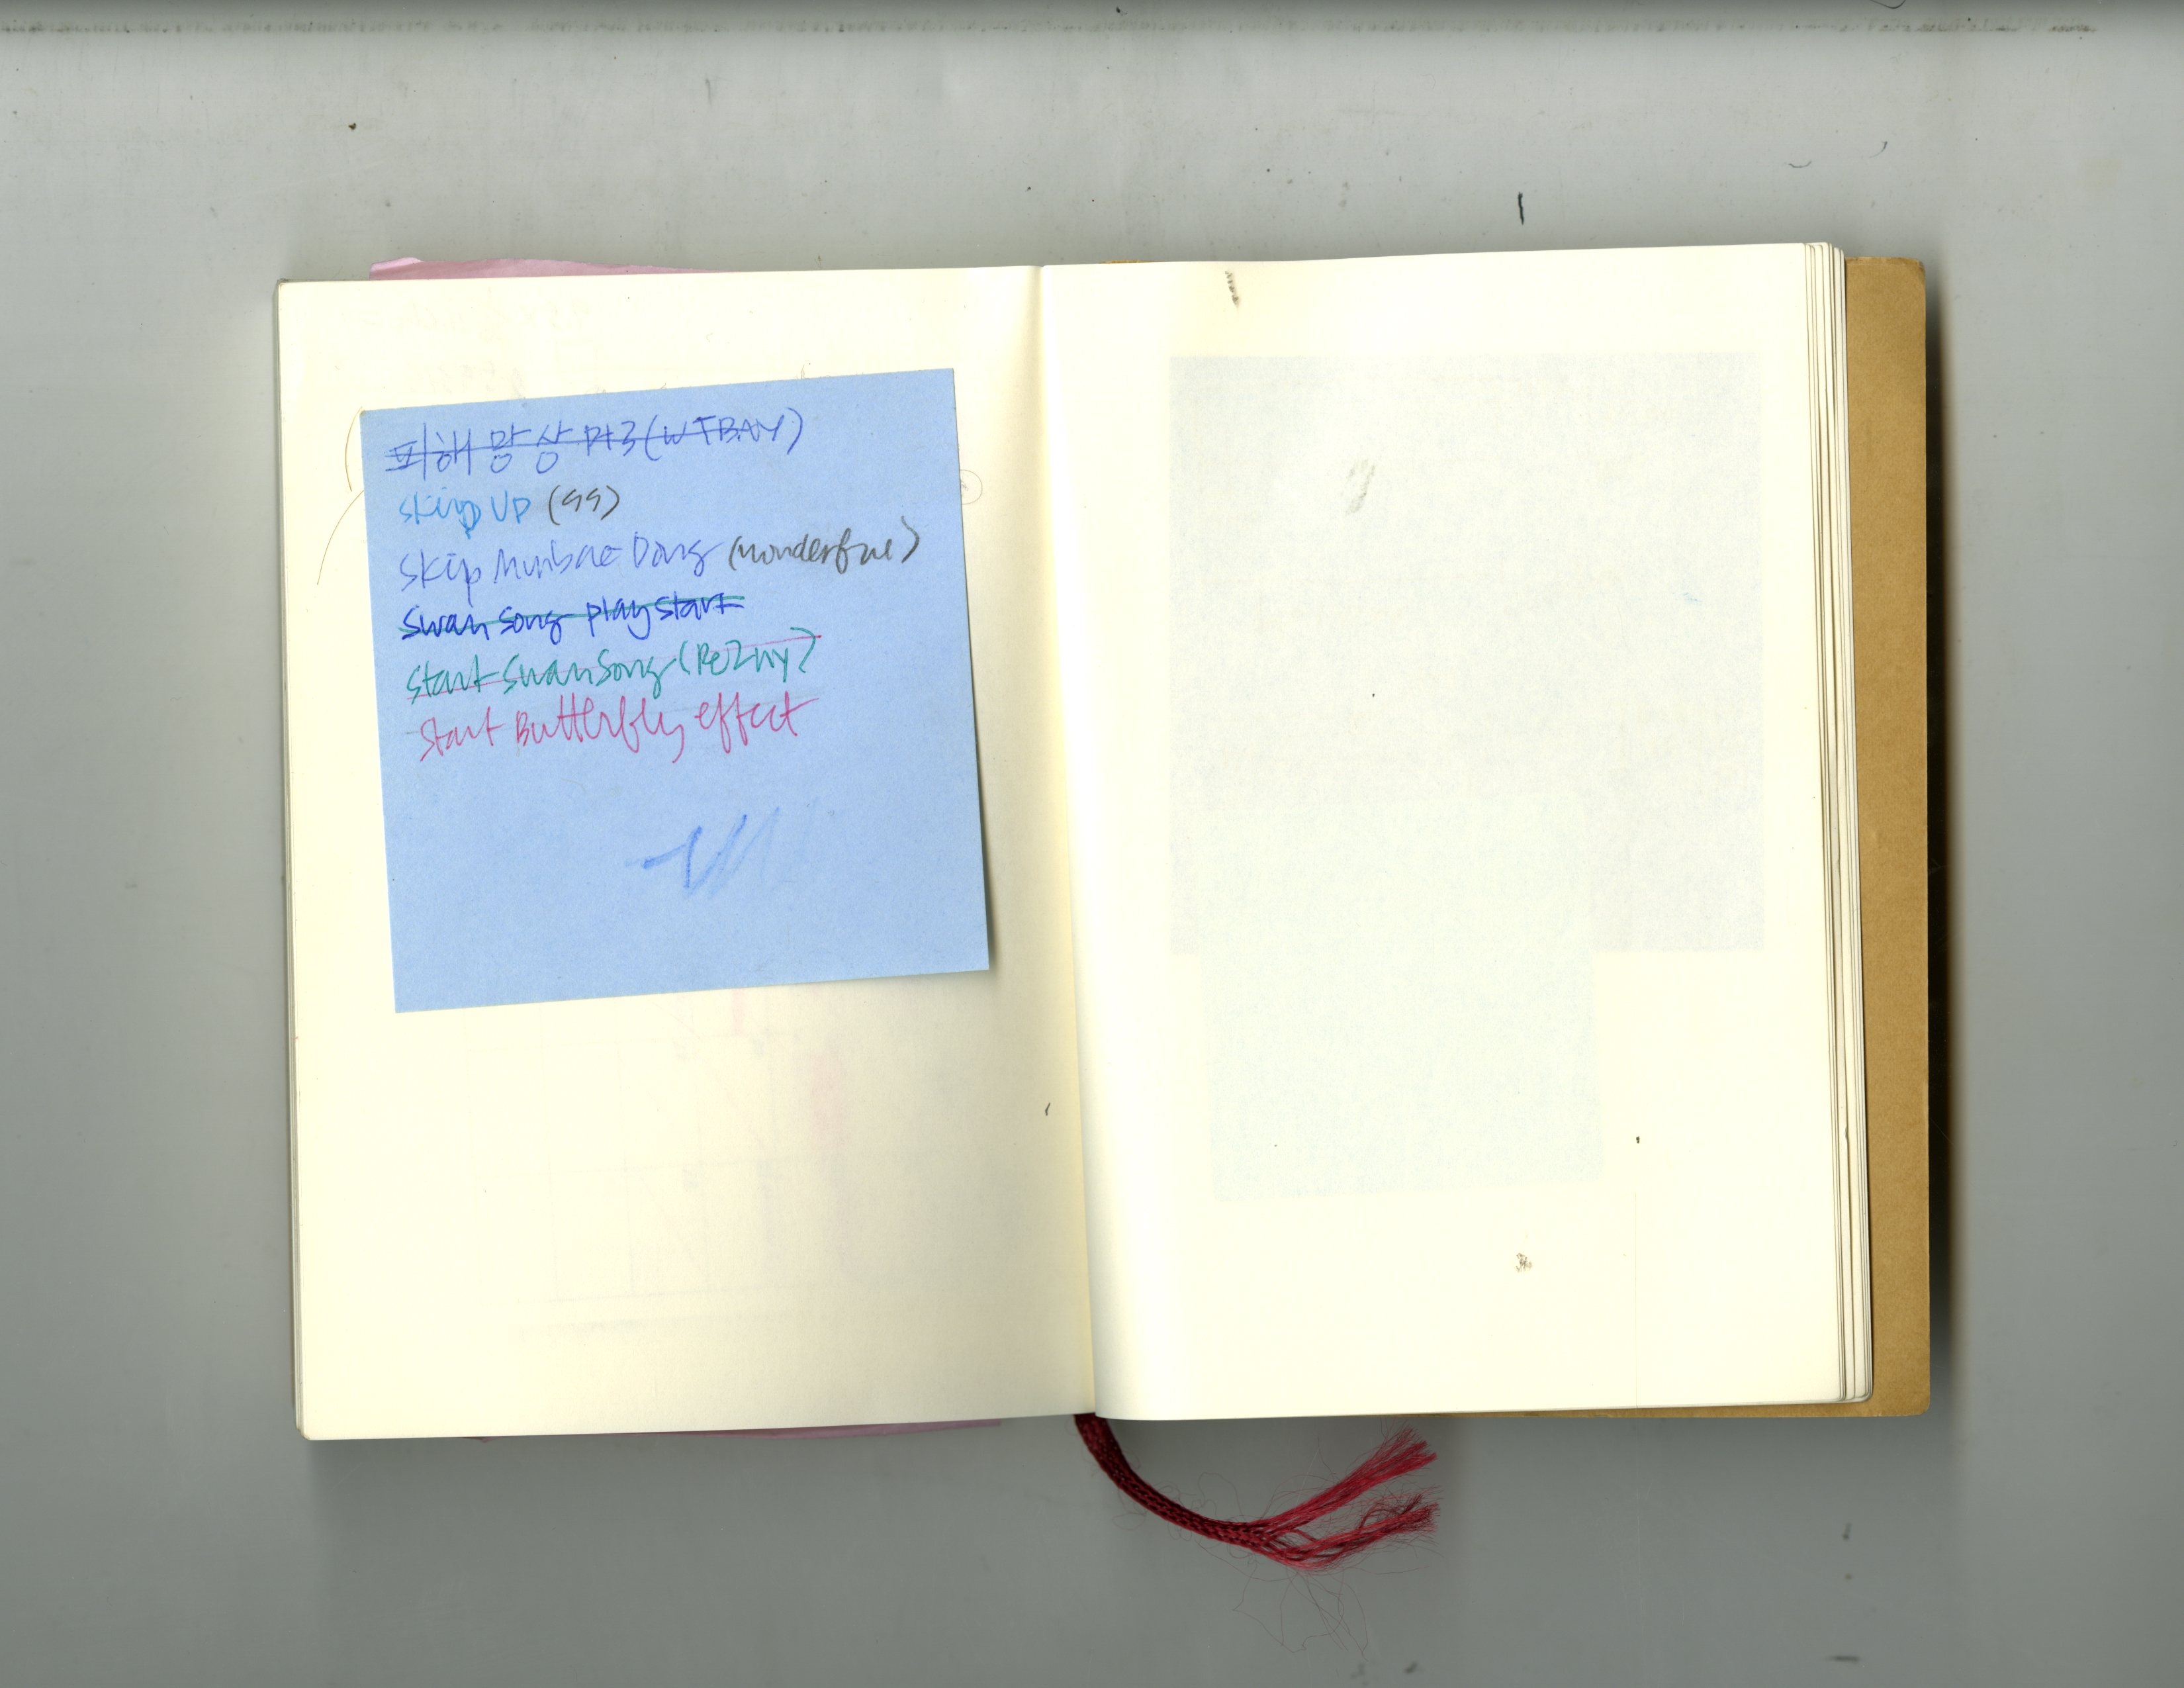 피해망상 pt3 (WTBAY)
skip up (99)
skip Munbae Dong (wonderful)
Swan Song play start
start Swan Song (
Start Butterfly effect